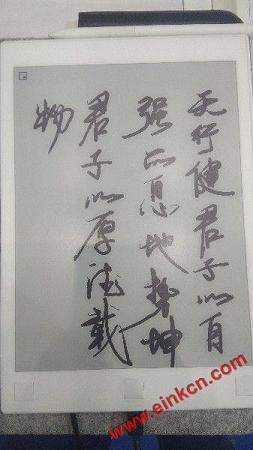 天行健君子以自
强不息地势坤
君子以厚德载
物
www.einkcn.com